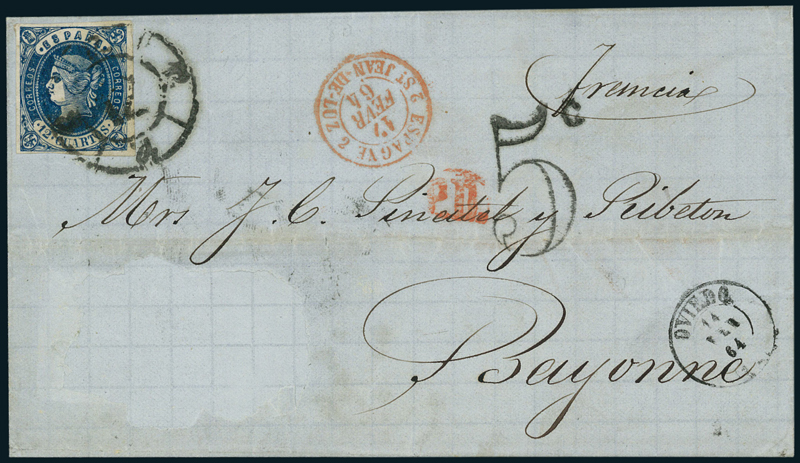 ESPAÑA
CORREOS
CORREOS
12 CUARTOS
2 ESPAGNE 2
ST JEAN-DE-LUZ
17
FEVR
64
Francia
5c
P.D.
Mrs J. C.
y
OVIEDO
14
FEB
64
Bayonne